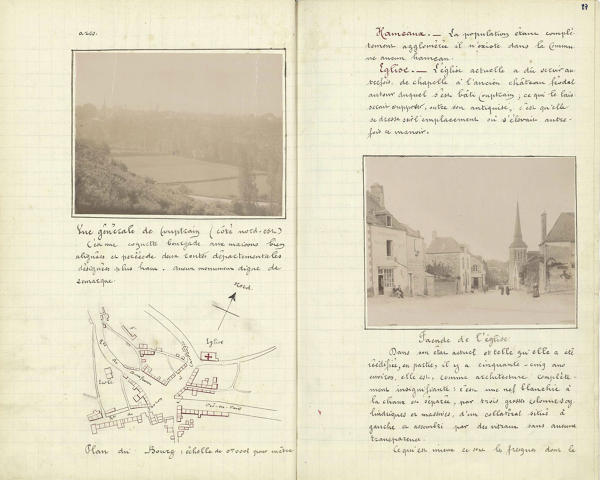 avec.
Vue générale de Couptrain (côté nord-est)
C'est une coquette bourgade aux maisons bien
alignées et percée de deux routes départementales
désignées plus haut. Aucun monument digne de
remarque.
Nord.
Eglise
Ecole
Plan du Bourg : échelle de 0m0001 pour mètre
Hameaux. — La population étant complè-
tement agglomérée il n'existe dans la Commu-
ne aucun hameau.
Eglise. — L'église actuelle a dû servir au-
trefois, de chapelle à l'ancien château féodal
autour duquel s'est bâti Couptrain ; ce qui le lais-
serait supposer, outre son antiquité, c'est qu'elle
se dresse sur l'emplacement où s'élevait autre-
fois ce manoir.
Façade de l'église.
Dans son état actuel et telle qu'elle a été
réédifiée, en partie, il y a cinquante-cinq ans
environ, elle est, comme architecture complète-
ment insignifiante : c'est une nef blanchie à
la chaux et séparée, par trois grosses colonnes cy-
lindriques et massives, d'un collatéral situé à
gauche et assombri par des vitraux sans aucune
transparence.
Ce qui est mieux ce sont les fresques dont le